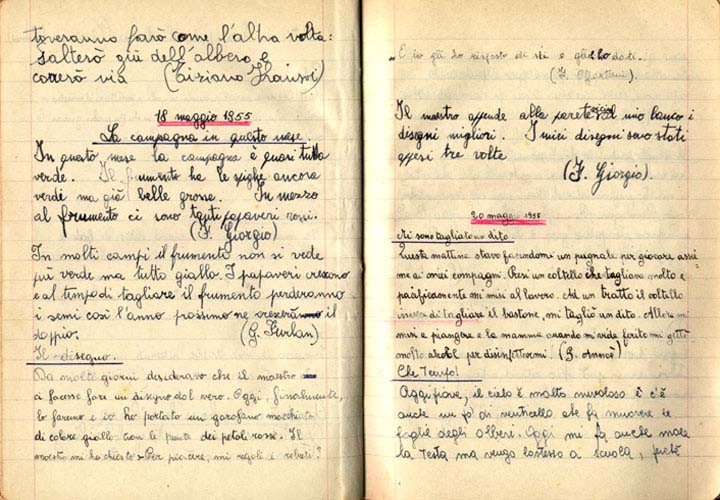 toveranno farò come l'altra volta:
salterò giù dell'albero e
correrò via (Tiziano
18 maggio 1955
La campagna in questo mese.
In questo mese la campagna è quasi tutta
verde. Il frumento ha le spighe ancora
verdi ma già belle grosse. In mezzo
al frumento ci sono tanti papaveri rossi.
(F. Giorgio)
In molti campi il frumento non si vede
più verde ma tutto giallo. I papaveri crescono
e al tempo di tagliare il frumento perderanno
i semi così l'anno prossimo ne cresceranno il
doppio. (G. Furlan)
Il disegno.
Da molti giorni desideravo che il maestro
ci facesse fare un disegno dal vero. Oggi, finalmente,
lo faremo e io ho portato un garofano macchiato
di colore giallo con le punte dei petali rosse. Il
maestro mi ha chiesto: - Per piacere, mi regali e rubeti?
E io gli ho risposto di sì e gli ho dati.
(F.
Il maestro appende alla parete vicino il mio banco i
disegni migliori. I miei disegni sono stati
appesi tre volte
(F. Giorgio).
20 maggio 1955
Mi sono tagliato un dito
Questa mattina stavo facendomi un pugnale per giocare assie
me ai miei compagni. Presi un coltello che tagliava molto e
pacificamente mi misi al lavoro. Ad un tratto il coltello
invece di tagliare il bastone, mi tagliò un dito. Allora mi
misi a piangere e la mamma quando mi vide ferito mi gettò
molto alcool per disinfettarmi. (B.
Che tempo!
Oggi piove, il cielo è molto nuvoloso e c'è
anche un po' di venticello che fa muovere le
foglie degli alberi. Oggi mi fa anche male
la testa ma vengo lostesso a scuola, perchè